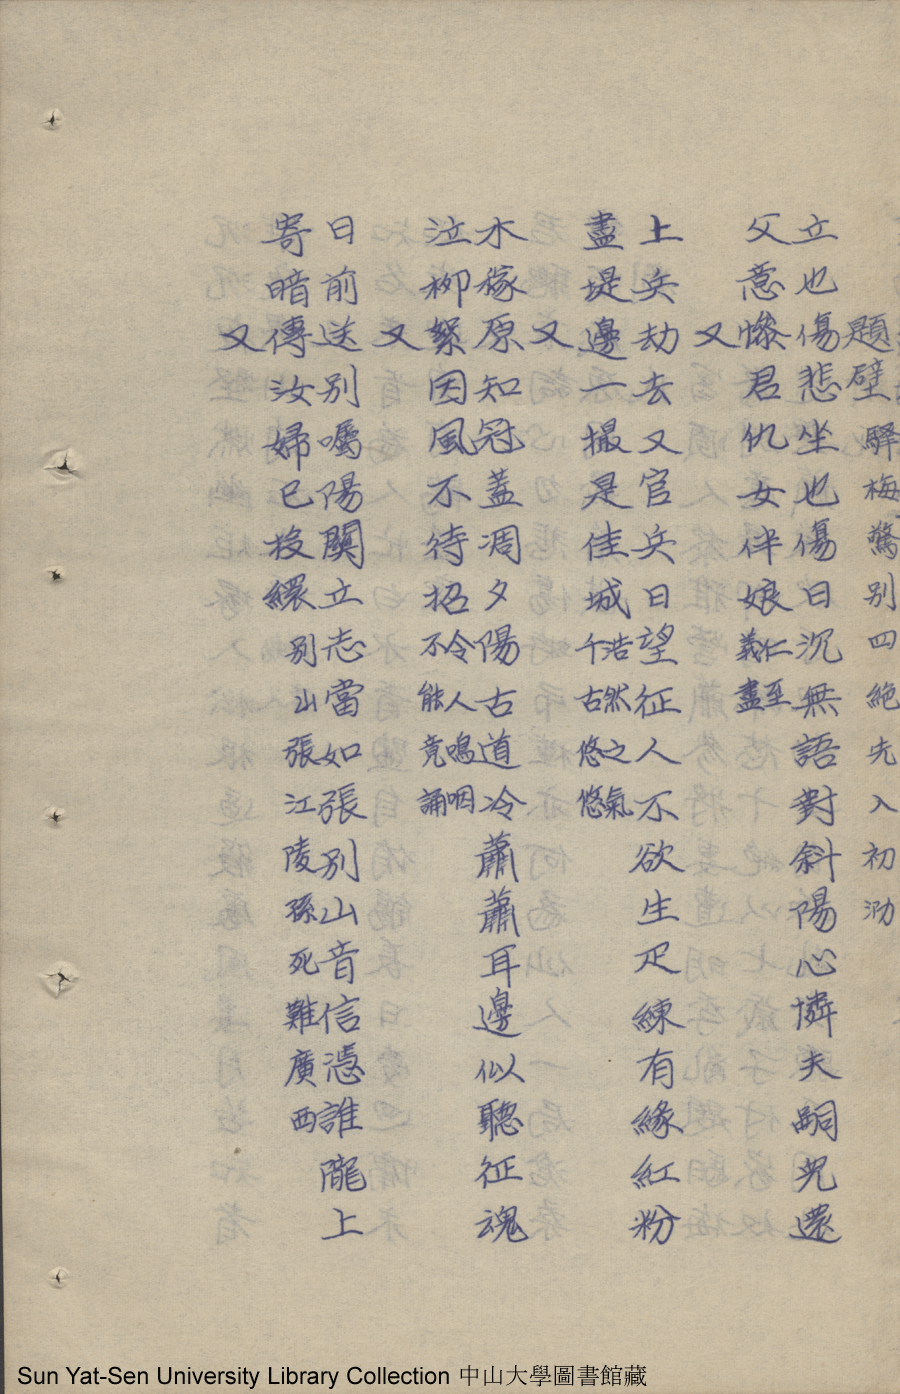 題壁驛梅驚別四絕先入初泐
立也傷悲坐也傷日沉無語對斜陽心憐夫嗣兒還
父意慘君仇女伴娘仁至義盡
又
上兵劫去又官兵日望征人不欲生疋練有緣紅粉
盡堤邊一撮是佳城浩然之氣千古悠悠
又
水稼原知冠蓋凋夕陽古道冷蕭蕭耳邊似聽征魂
泣柳絮因風不待招令人鳴咽不能竞誦
又
日前送別囑陽關立志當如張別山音信憑誰隴上
寄暗傳汝婦已投繯別山張江陵孫死難廣西
又
Sun Yat-Sen University Library Collection 中山大學圖書館藏